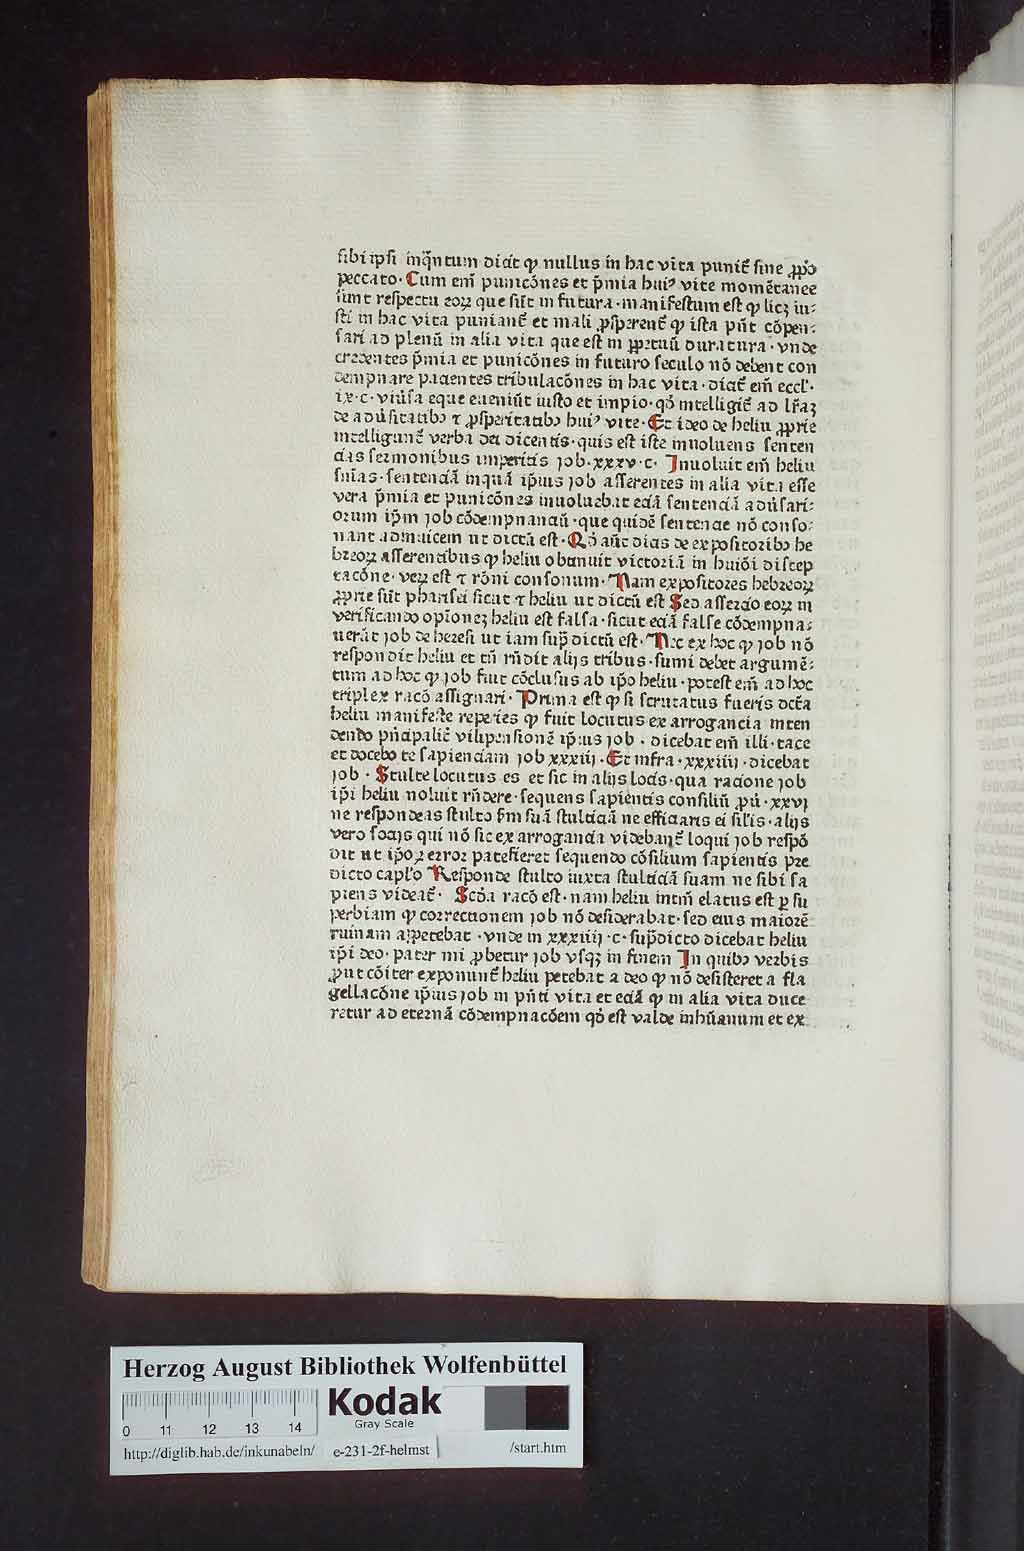 sibi ipsi inq̃ntum dicit ꝙ nullus in hac vita punit᷑ sine ꝓp̃o
peccato · Cum em̃ punicõnes et p̃mia huiꝰ vite momẽtanee
sunt respectu eoꝝ que sũt in futura · manifestum est ꝙ licꝫ iu⸗
sti in hac vita puniant᷑ et mali ꝓsperent᷑ ꝙ ista pñt cõpen⸗
sari ad plenũ in alia vita que est in ꝑpetuũ duratura · vnde
credentes p̃mia et punicõnes in futuro seculo nõ debent con
dempnare pacientes tribulacõnes in hac vita · dicit᷑ em̃ eccl̃ ·
ix · c · viũsa eque eueniũt iusto et impio · qď intelligit᷑ ad lr̃aꝫ
de adũsitatibꝰ ⁊ ꝓsperitatibꝰ huiꝰ vite · Et ideo de heliu ꝓprie
intelligunt᷑ verba dei dicentis · quis est iste inuoluens senten
cias sermonibus imperitis job · xxxv · c · Inuoluit em̃ heliu
sũias · sentenciã inquã ip̃ius job asserentes in alia vita esse
vera p̃mia et punicõnes inuoluebat eciã sentenciã adũsari⸗
orum ip̃m job cõdempnanciũ · que quidẽ sentencie nõ conso⸗
nant adinuicem ut dictũ est · Qď aũt dicis de expositoribꝰ he
breoꝝ asserentibus ꝙ heliu obtinuit victoriã in huiõi discep
tacõne · veꝝ est ⁊ rõni consonum · Nam expositores hebreoꝝ
ꝓprie sũt pharisei sicut ⁊ heliu ut dictũ est Sed assercio eoꝝ in
verificando opĩoneꝫ heliu est falsa · sicut eciã false cõdempna⸗
uerãt job de heresi ut iam sup̃ dictũ est · Nec ex hoc ꝙ job nõ
respondit heliu et tñ rñdit alijs tribus · sumi debet argumẽ⸗
tum ad hoc ꝙ job fuit cõclusus ab ip̃o heliu · potest em̃ ad hoc
triplex racõ assignari · Prima est ꝙ si scrutatus fueris dc̃ta
heliu manifeste reperies ꝙ fuit locutus ex arrogancia inten
dendo pñcipalit᷑ vilipensionẽ ip̃ius job · dicebat em̃ illi · tace
et docebo te sapienciam job xxxiij · Et infra · xxxiiij · dicebat
job · Stulte locutus es et sic in alijs locis · qua racione job
ip̃i heliu noluit rñdere · sequens sapientis consiliũ ꝓũ · xxvj
ne respondeas stulto sm̃ suã stulticiã ne efficiaris ei sil̃is · alijs
vero socijs qui nõ sic ex arrogancia videbant᷑ loqui job respõ
dit ut ip̃oꝝ error patefieret sequendo cõsilium sapientis pre
dicto capl̃o Responde stulto iuxta stulticiã suam ne sibi sa
piens videat᷑ · Scďa racõ est · nam heliu intm̃ elatus est ꝑ su
perbiam ꝙ correctionem job nõ desiderabat · sed eius maiorẽ
ruinam appetebat · vnde in xxxiiij · c · sup̃dicto dicebat heliu
ip̃i deo · pater mi ꝓbetur job vsqꝫ in finem In quibꝰ verbis
ꝓut cõiter exponunt᷑ heliu petebat a deo ꝙ nõ desisteret a fla
gellacõne ip̃ius job in pñti vita et eciã ꝙ in alia vita duce
retur ad eternã cõdempnacõem qď est valde inhũanum et ex
Herzog August Bibliothek Wolfenbüttel
Kodak
Gray Scale
0 11 12 13 14
http://diglib.hab.de/inkunabeln/ e-231-2f-helmst /start.htm